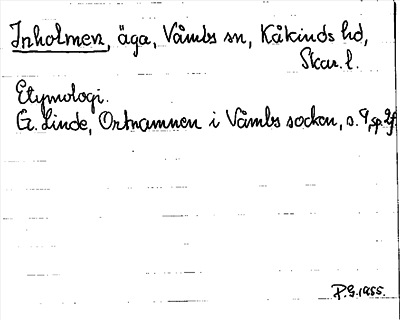 Inholmen, äga, Våmbs sn, Kåkinds hd,
Skar. l.
Etymologi.
G. Linde, Ortnamnen i Våmbs socken, s. 9, sp. 2f
P.G. 1955.